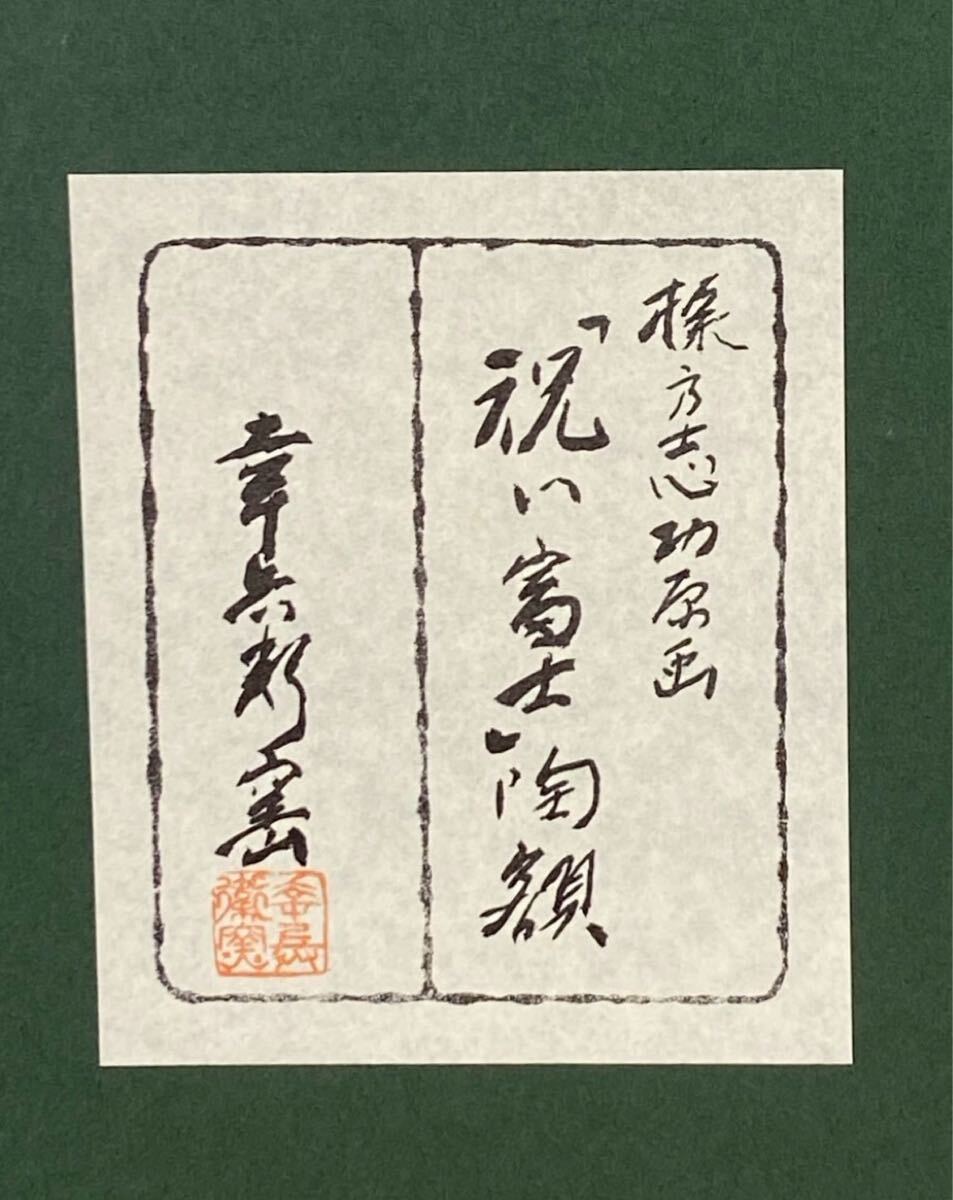 棟方志功原画
「祝い富士」陶額
幸兵衛窯
幸兵衛窯